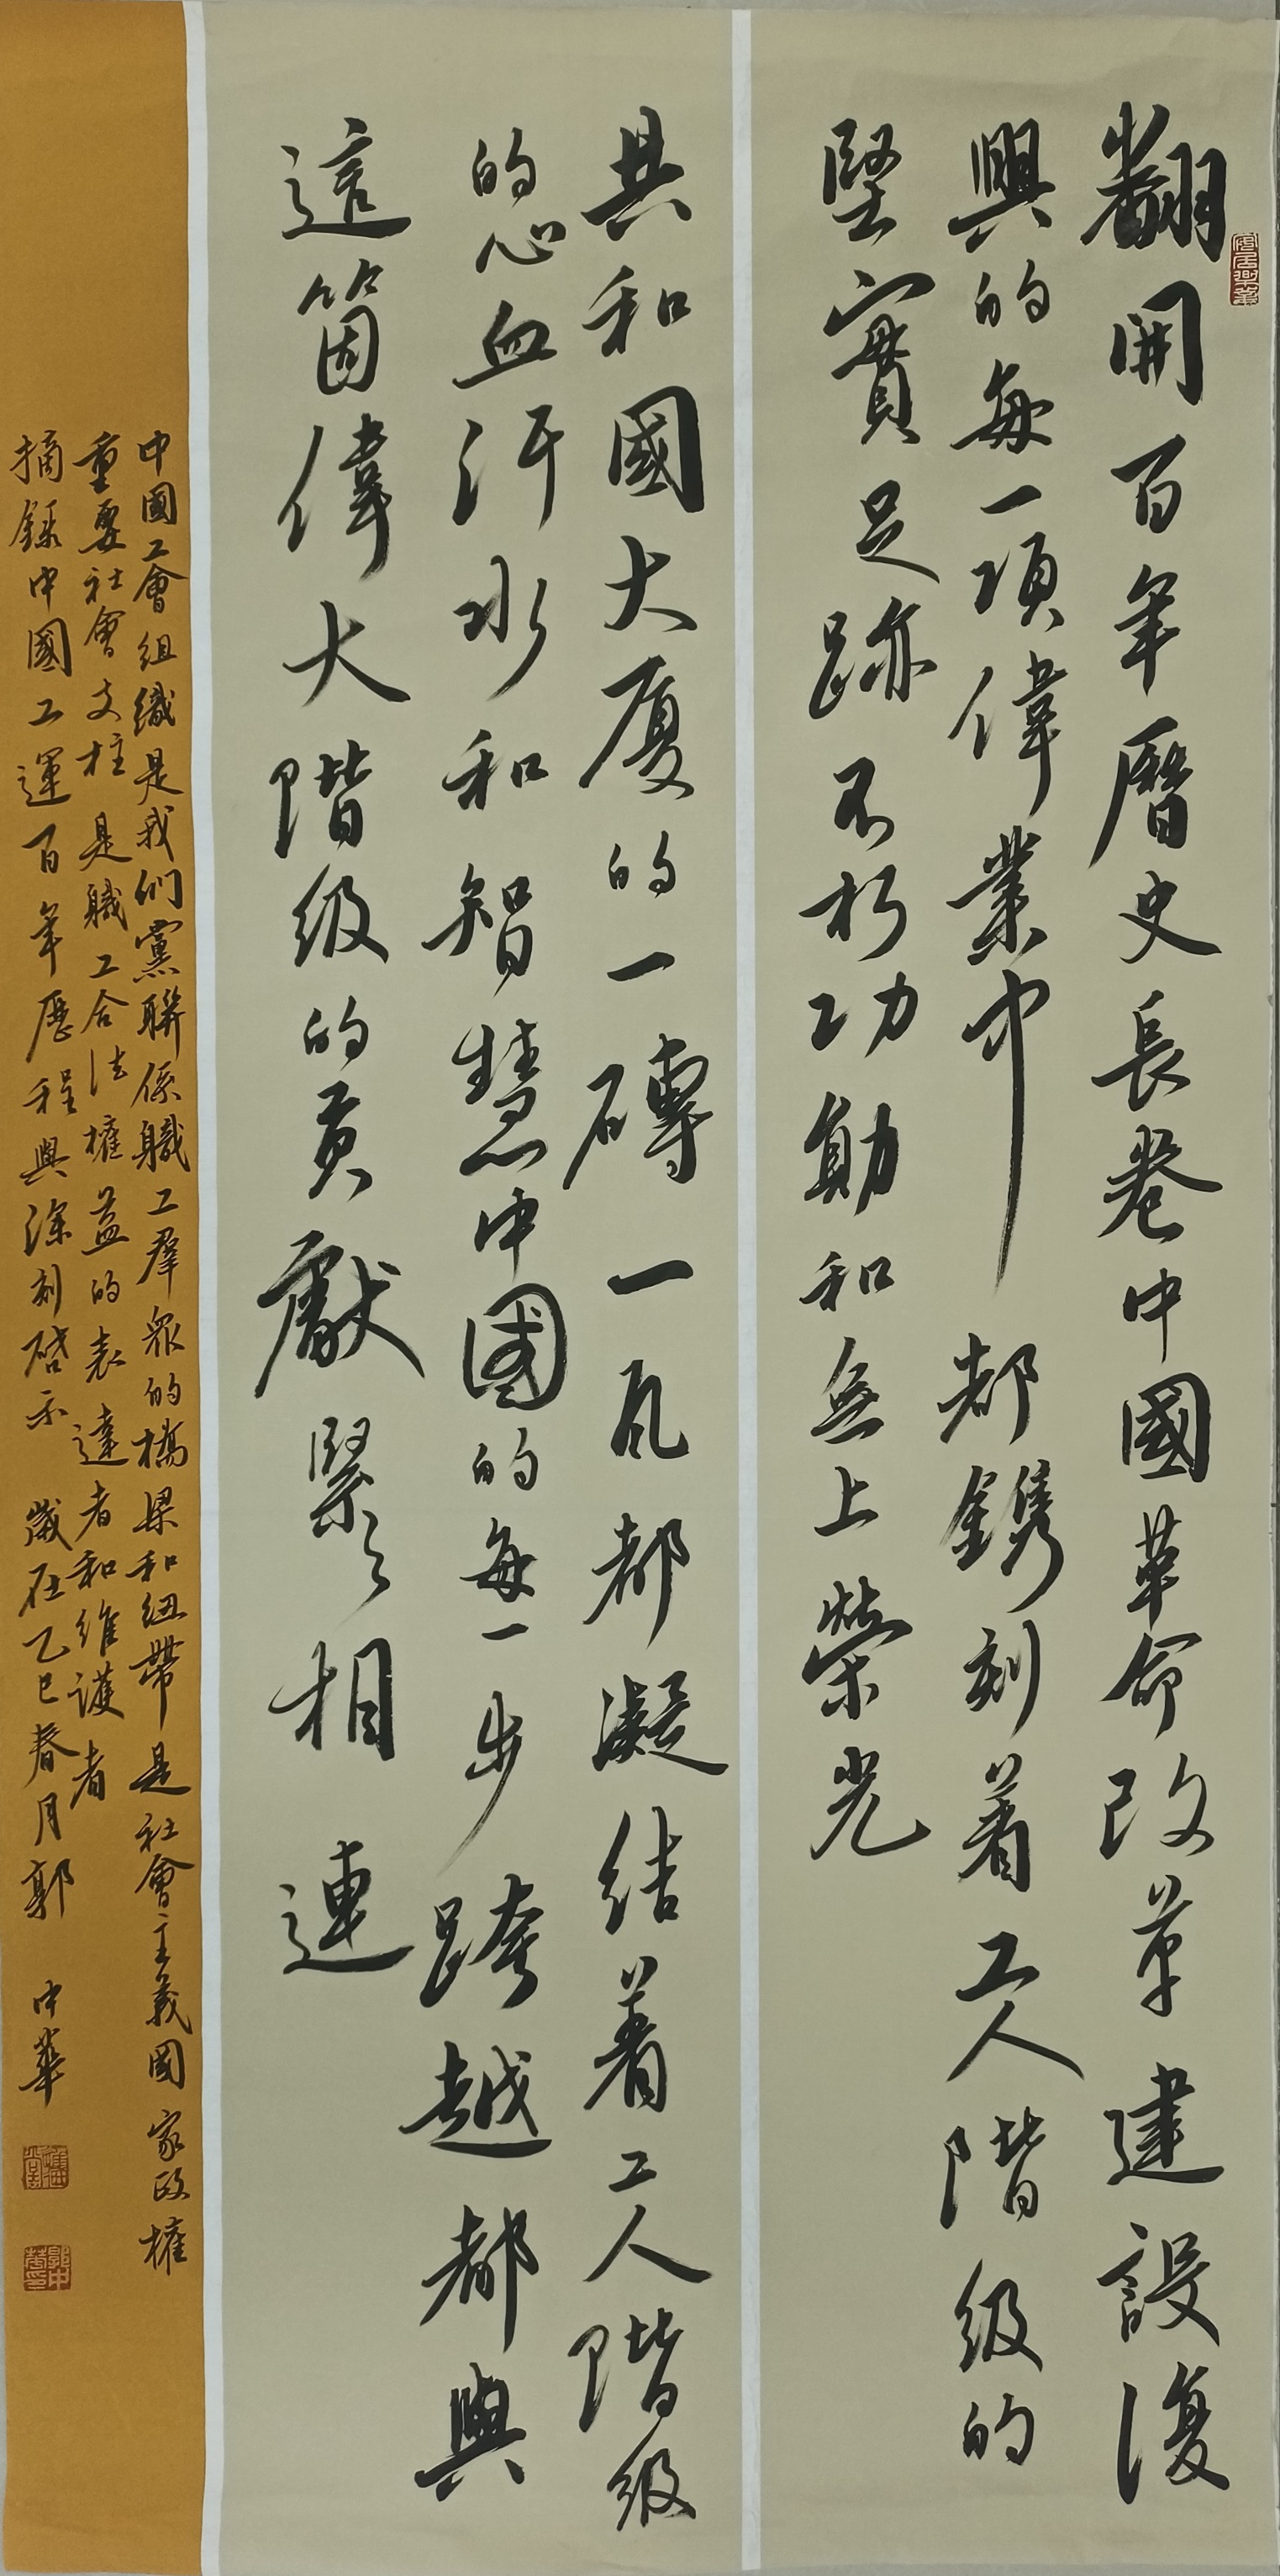 翻開百年曆史長卷中國革命改革建設復
興的每一項偉業中都鐫刻着工人階級的
堅實足跡不朽功勛和無上榮光
共和國大廈的一磚一瓦都凝結着工人階級
的心血汗水和智慧中國的每一步跨越都與
這箇偉大階級的貢獻緊々相連
中國工會組織是我們黨聯係職工羣眾的橋梁和紐帶是社會主義國家政權
重要社會支柱是職工合法權益的表達者和維護者
摘錄中國工運百年歷程與深刻啓示歲在乙巳春月郭中華